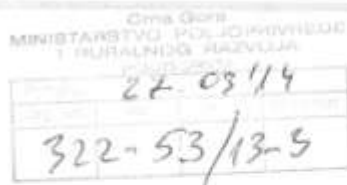 Crna Gora
MINISTARSTVO POLJOPRIVREDE
I RURALNOG RAZVOJA
27 03 14
322-53/13-3